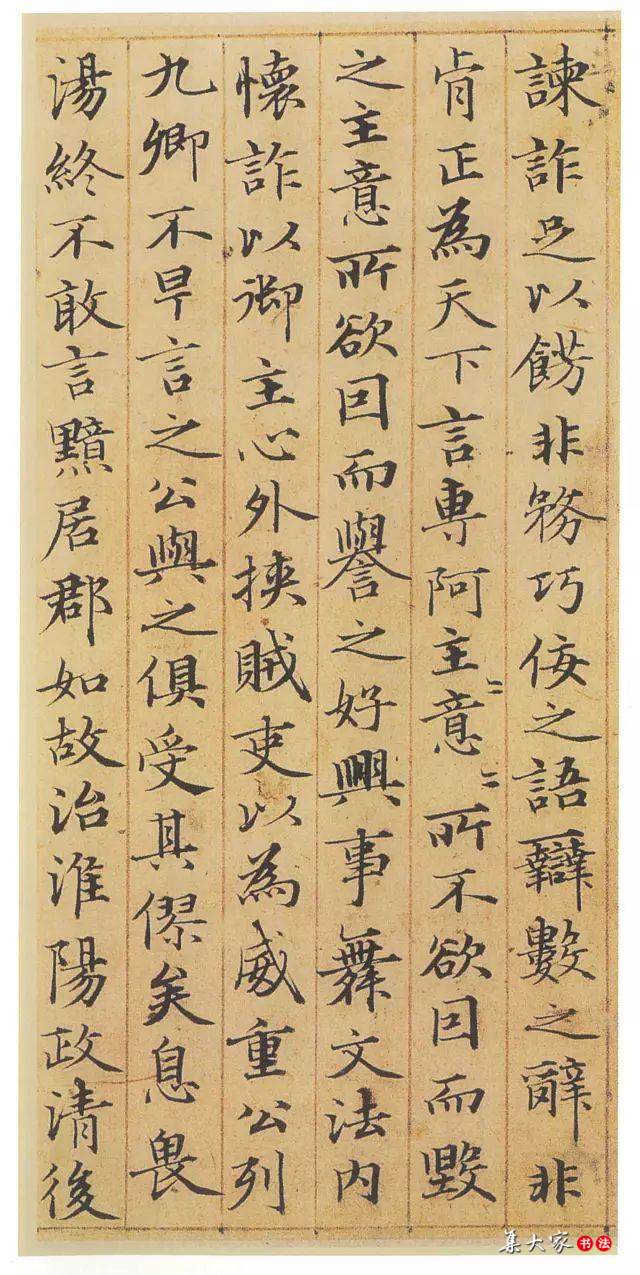 諫詐足以餝非務巧佞之語辯數之辭非
肯正為天下言専阿主意〻所不欲因而毀
之主意所欲因而譽之好興事舞文法内
懷詐以御主心外挾賊吏以為威重公列
九卿不早言之公與之俱受其僇矣息畏
湯終不敢言黯居郡如故治淮陽政清後
集大家书法